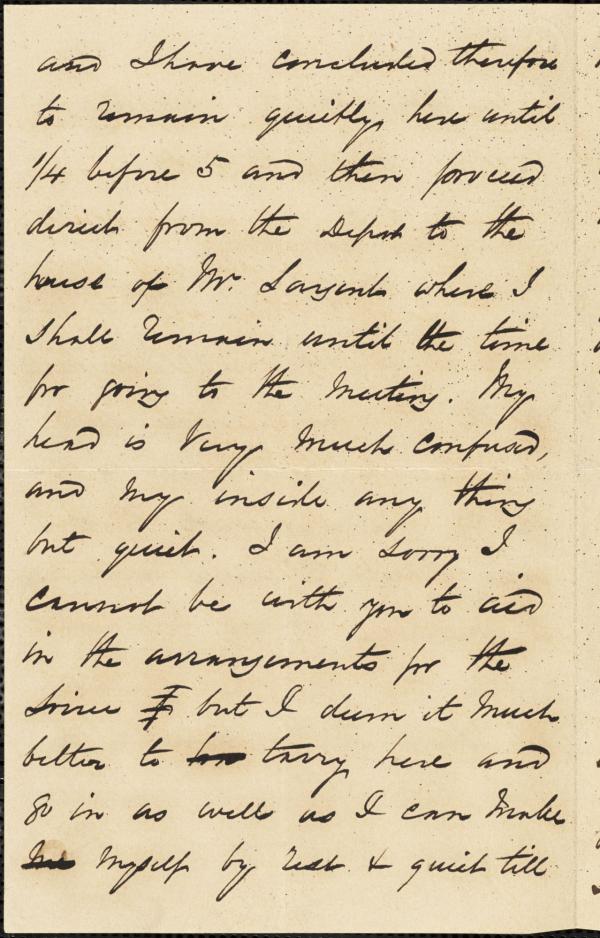 and I have concluded therefore
to remain quietly here until
1/4 before 5 and then proceed
direct from the Depot to the
house of Mr. Sargent where I
shall remain until the time
for going to the Meeting. My
head is very much confused,
and my inside any thing
but quiet. I am sorry I
cannot be with you to aid
in the arrangements for the
Soiree but I deem it much
better to tarry here and
go in as well as I can make
myself by rest & quiet till